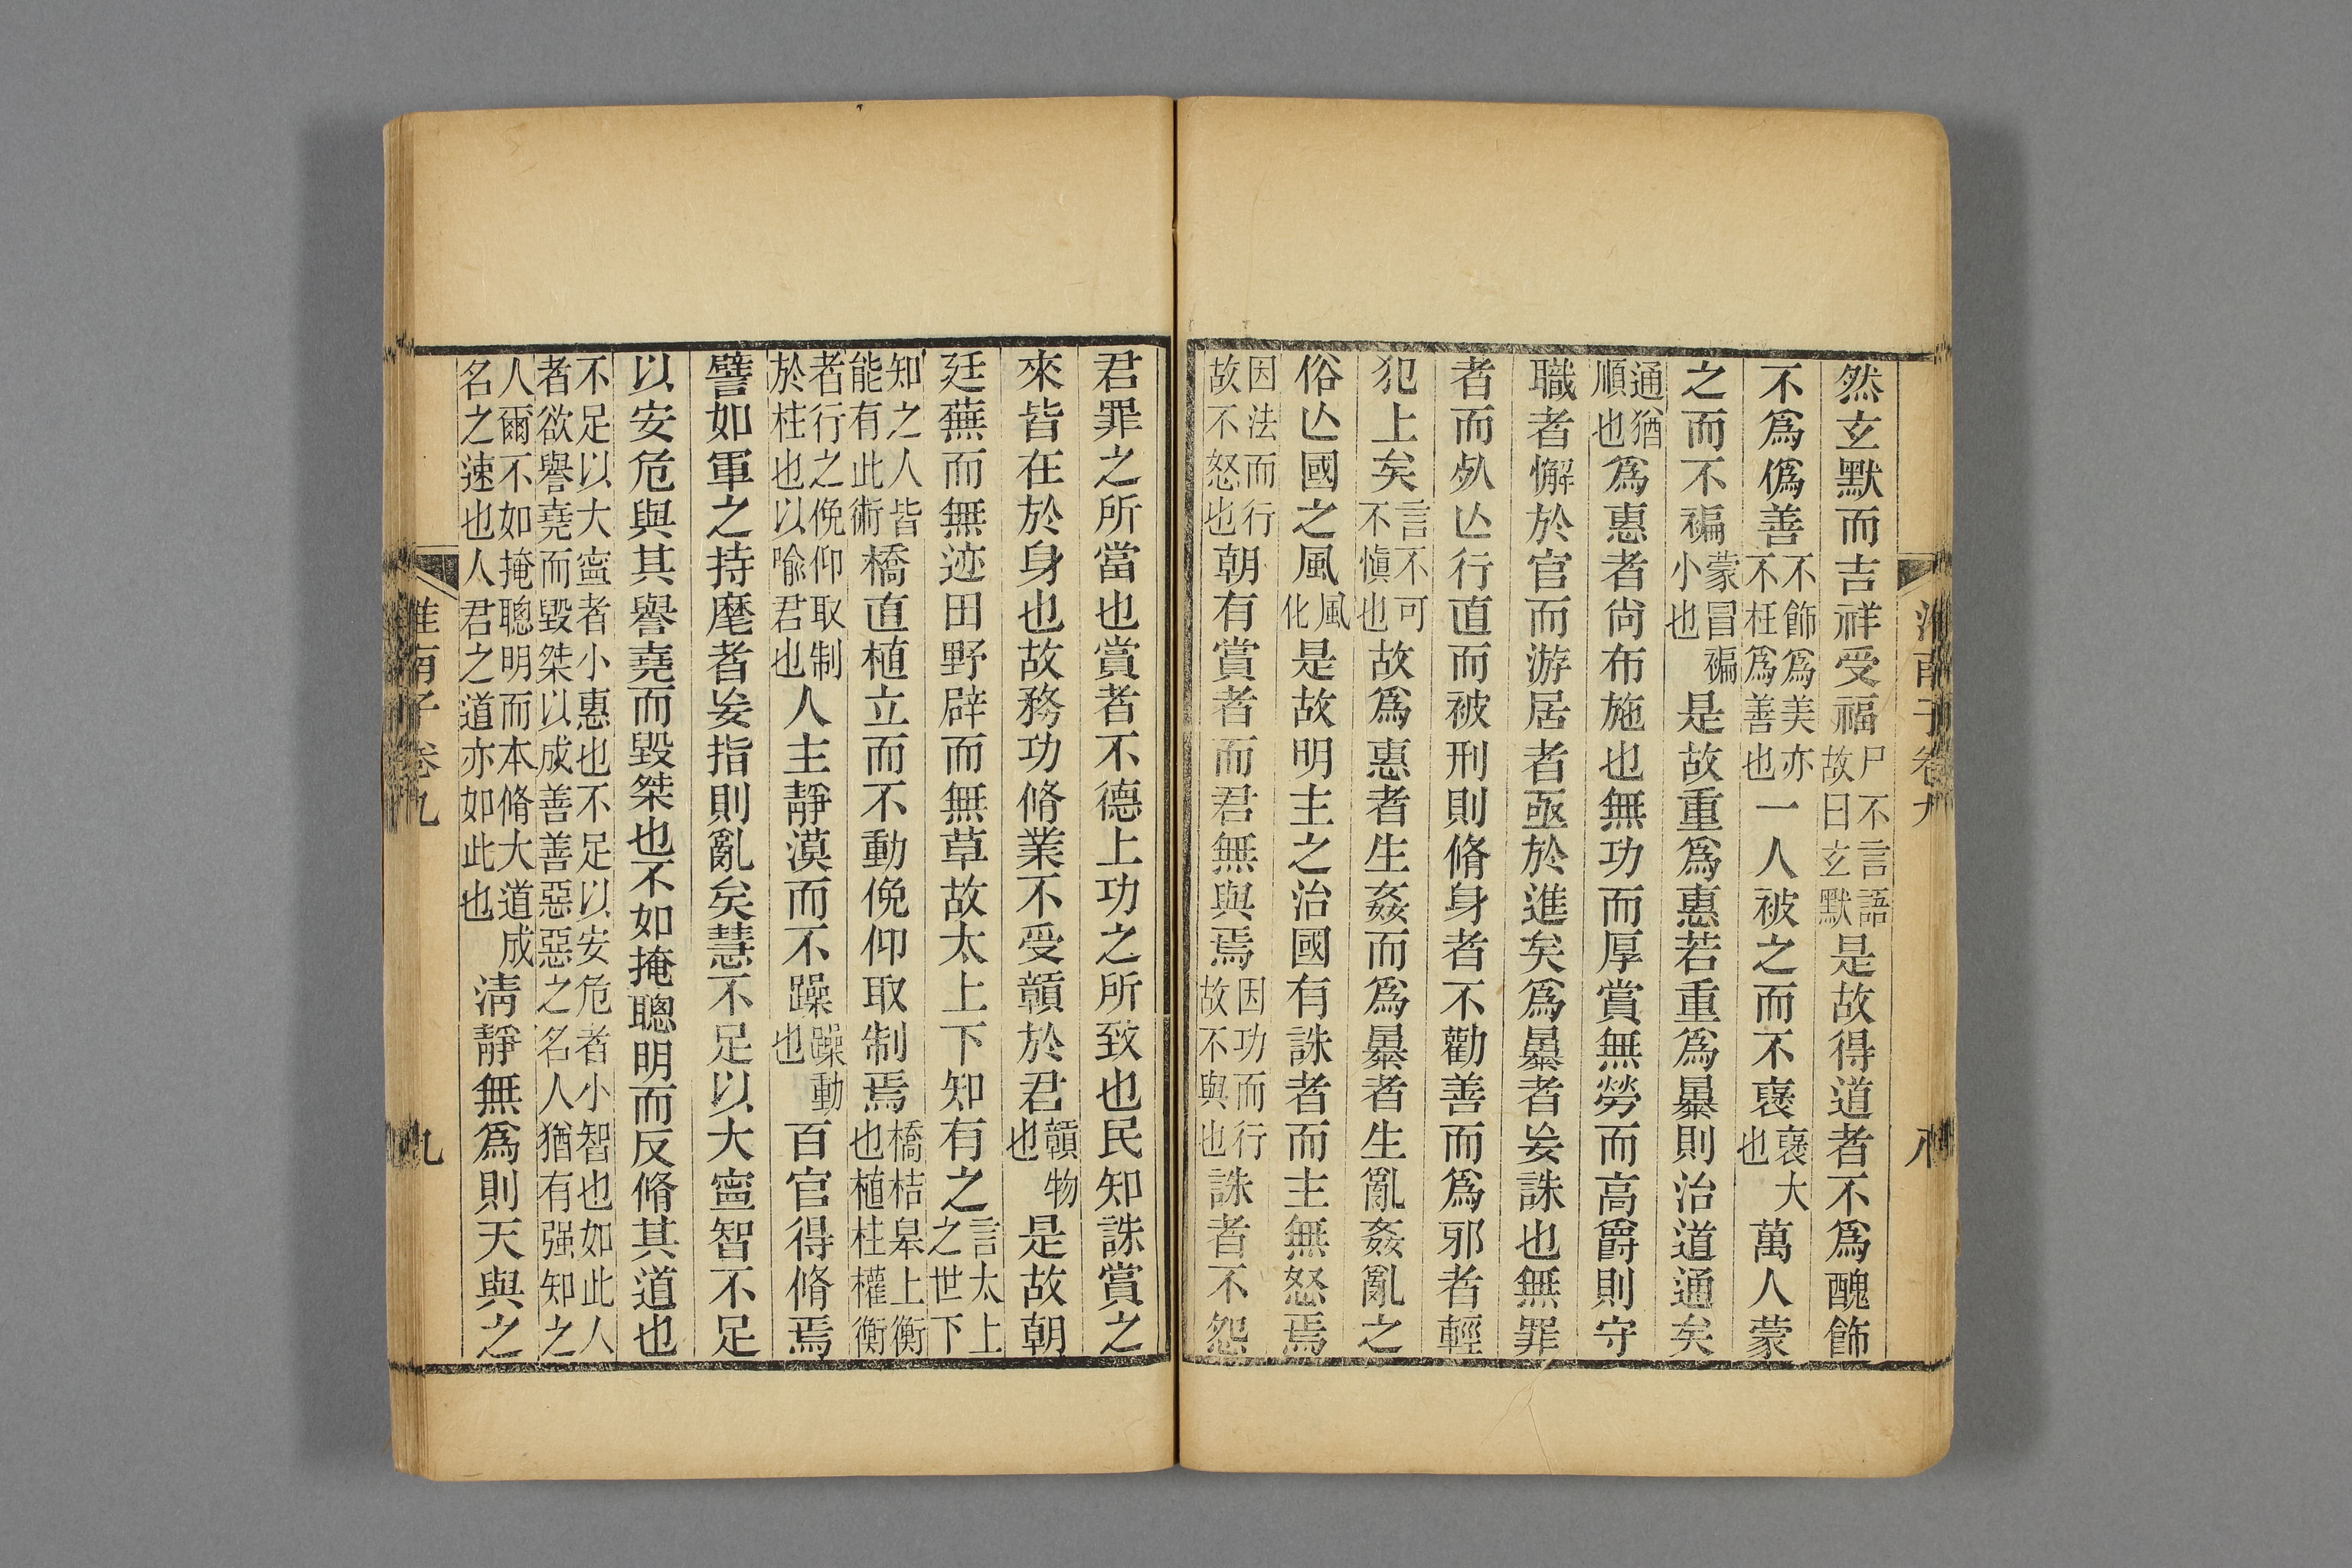 淮南子卷九 八
然玄默而吉祥受福尸不言語故曰玄默是故得道者不爲醜飾
不爲僞善不飾爲美亦不枉爲善也一人被之而不褒褒大也萬人蒙
之而不褊蒙冒褊小也是故重爲惠若重爲暴則治道通矣
通猶順也爲惠者尙布施也無功而厚賞無勞而高爵則守
職者懈於官而游居者亟於進矣爲暴者妄誅也無罪
者而死亡行直而被刑則脩身者不勸善而爲邪者輕
犯上矣言不可不愼也故爲惠者生姦而爲暴者生亂姦亂之
俗亾國之風風化是故明主之治國有誅者而主無怒焉
因法而行故不怒也朝有賞者而君無與焉因功而行故不與也誅者不怨
君罪之所當也賞者不德上功之所致也民知誅賞之
來皆在於身也故務功脩業不受贛於君贛物也是故朝
廷蕪而無迹田野辟而無草故太上下知有之言太上之世下
知之人皆能有此術橋直植立而不動俛仰取制焉橋桔皋上衡也植柱權衡
者行之俛仰取制於柱也以喻君也人主靜漠而不躁躁動也百官得脩焉
譬如軍之持麾者妄指則亂矣慧不足以大寧智不足
以安危與其譽堯而毀桀也不如掩聰明而反脩其道也
不足以大寧者小惠也不足以安危者小智也如此人者欲譽堯而毀桀以成善善惡惡之名人猶有强知之
人爾不如掩聰明而本脩大道成名之速也人君之道亦如此也淸靜無爲則天與之
淮南子卷九 九